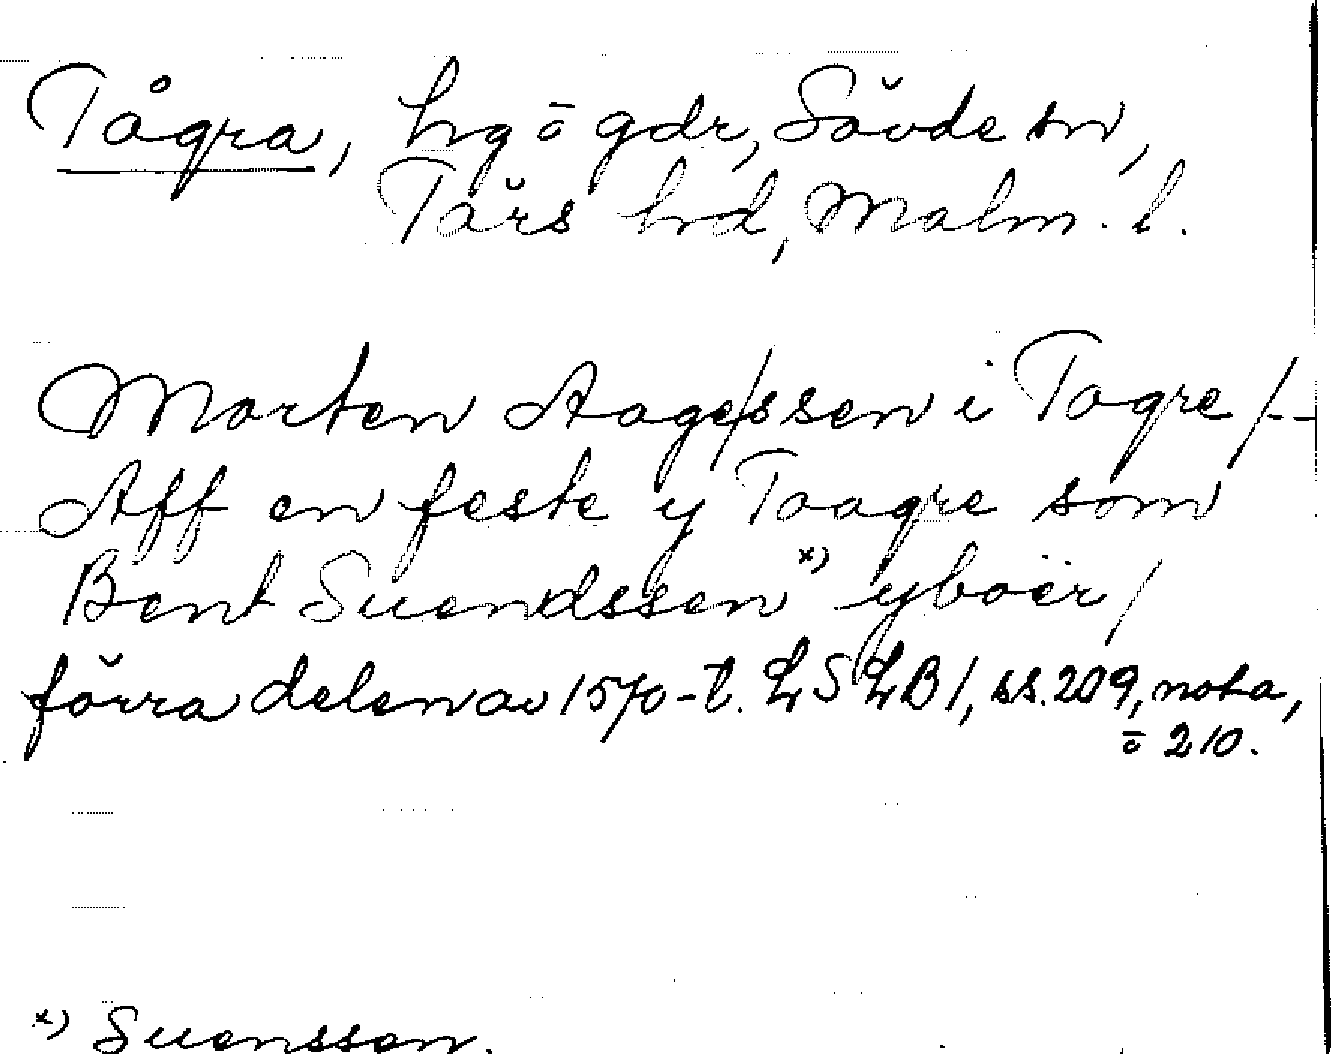 Tågra, hg ō gdr, Sövde sn,
Färs hd, Malm. l.
Morten Aage/ssen i Tagre/--
Aff en feste y Taagre som
Bent Suendssen x) yboer/
förra delen av 1570-t. LSLB 1, ss. 209, nota,
ō 210.
x) Suenssen.